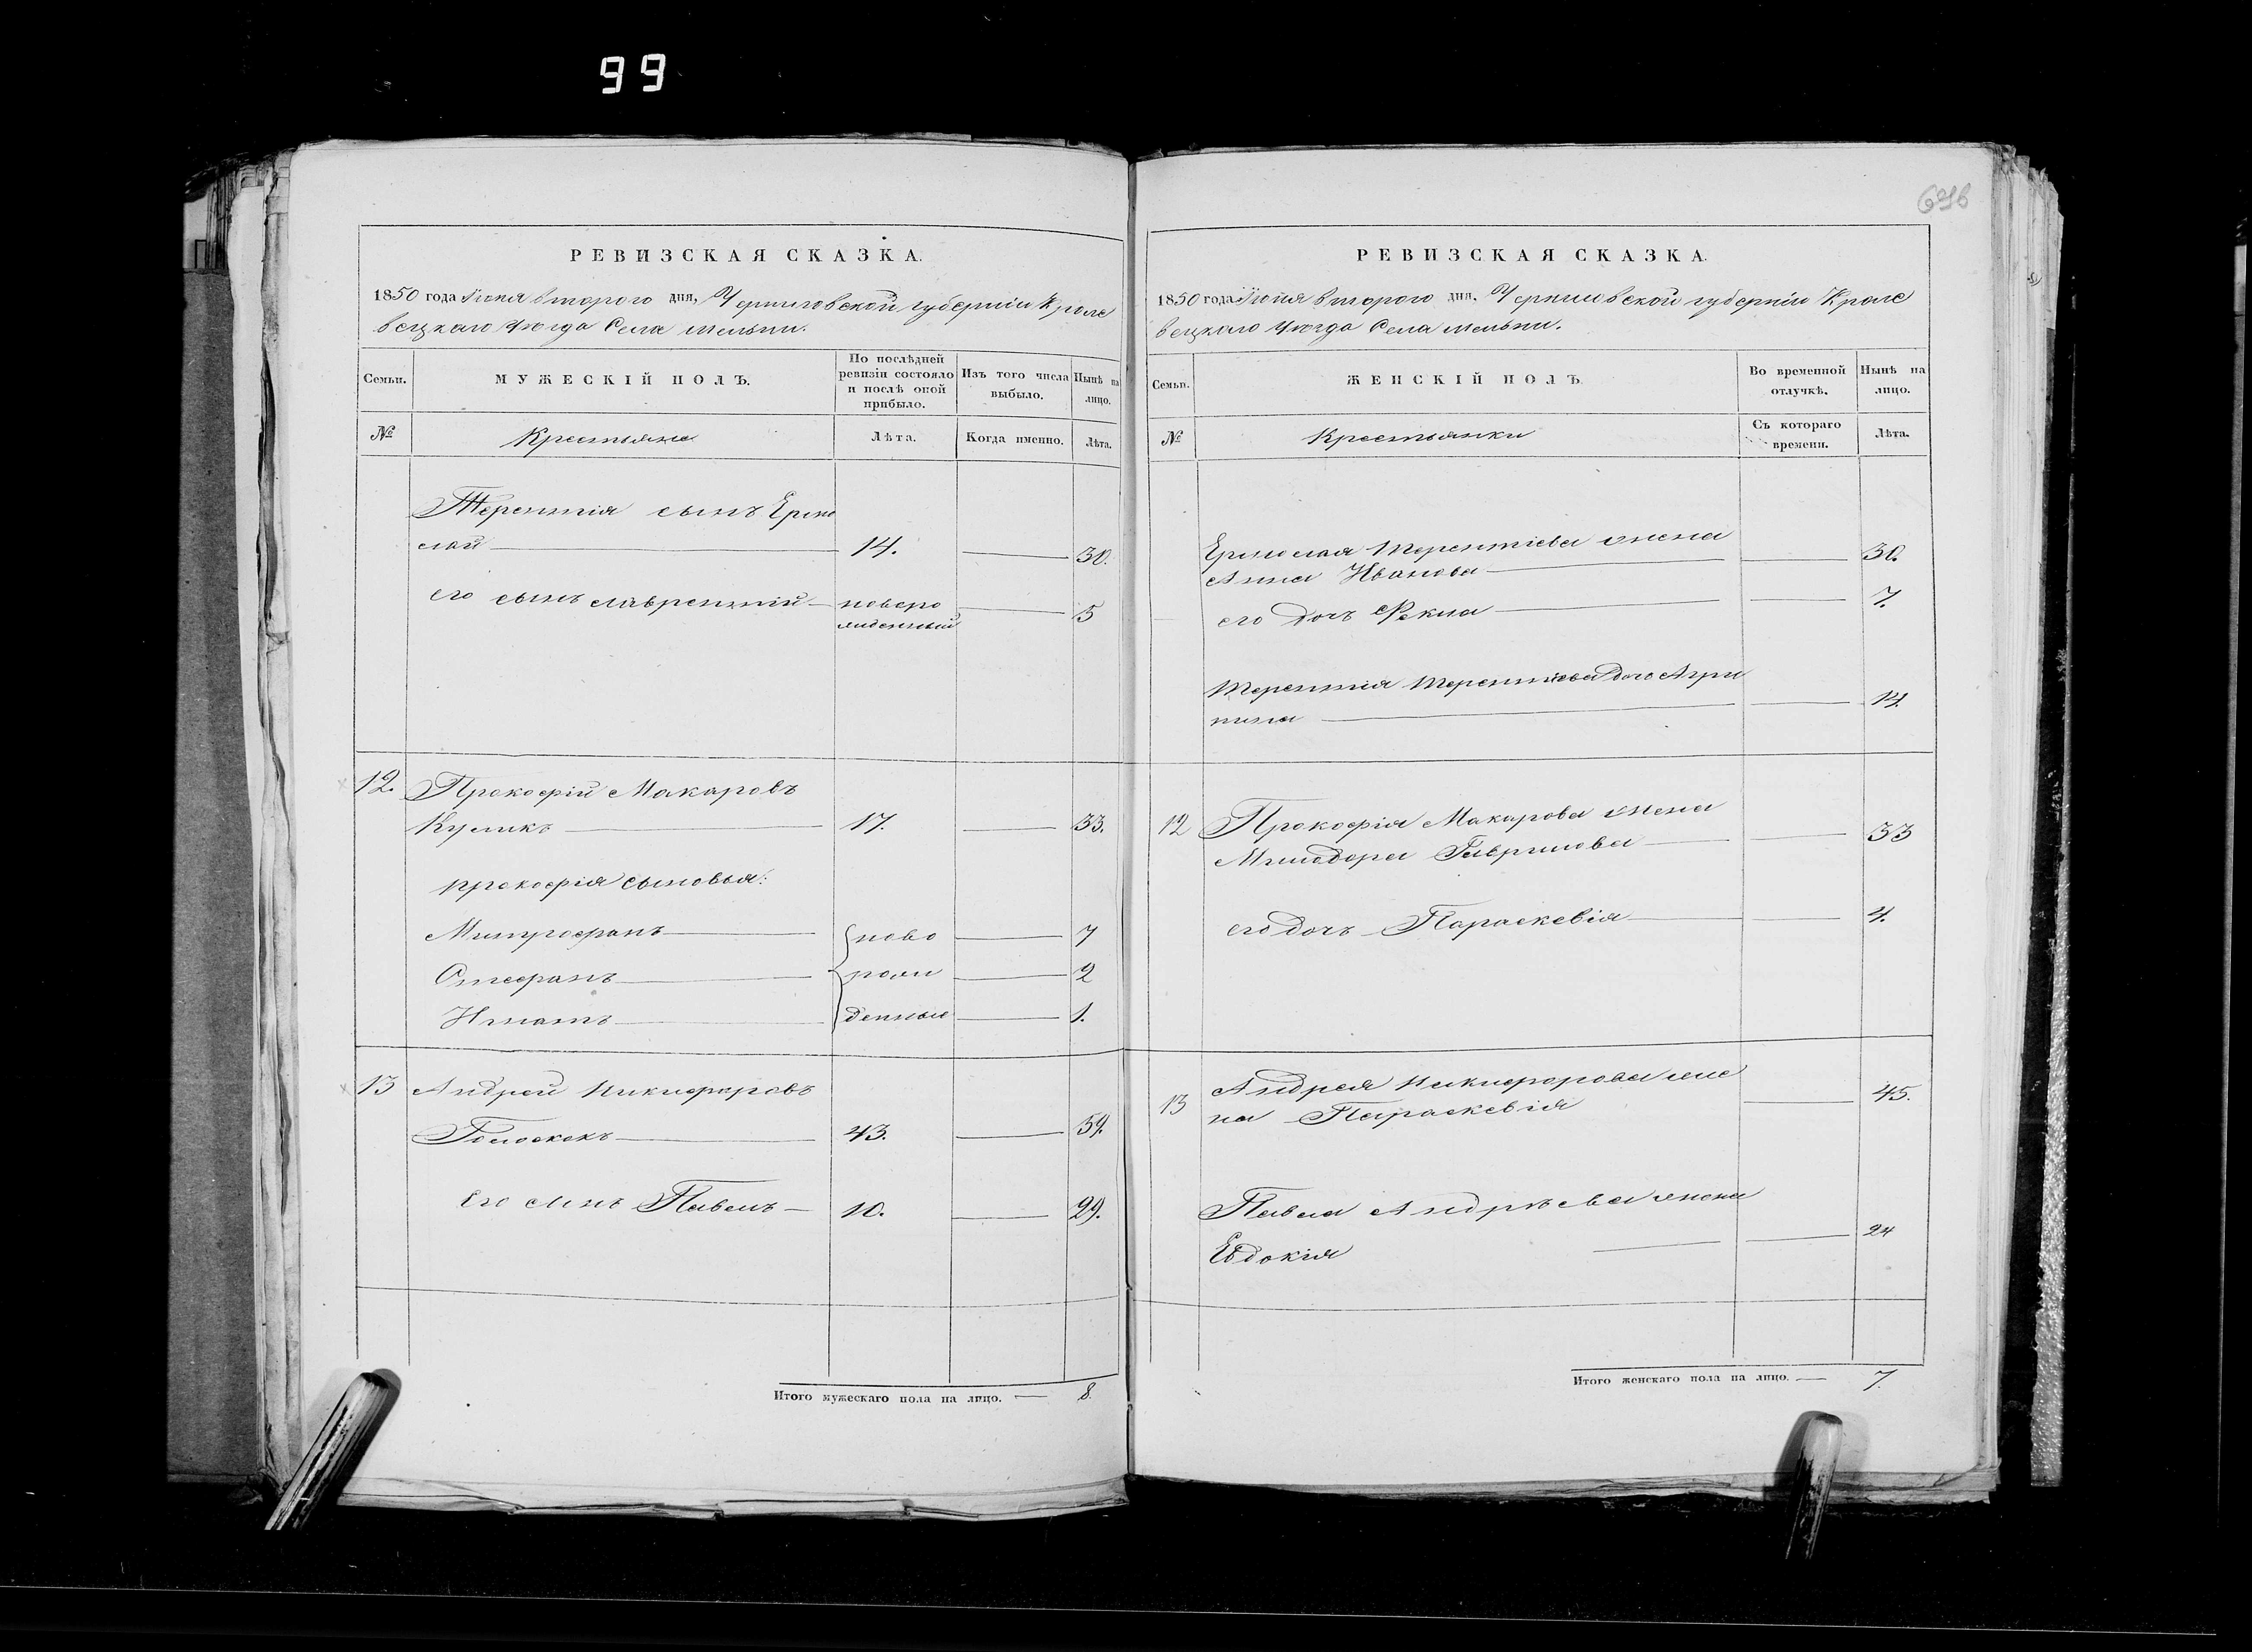 99
696
РЕВИЗСКАЯ СКАЗКА.
1850 года Іюня второго дня, Черниговской губерніи Кроле
вецкаго уѣзда Села Мельни.
Семьи.
МУЖЕСКІЙ ПОЛЪ.
По послѣдней ревизіи состояло и послѣ оной прибыло.
Изъ того числа выбыло.
Нынѣ на лицо.
№
Крестьяне
Лѣта.
Когда именно.
Лѣта.
Терентія сынъ Ермо
лай 14. 30.
его сынъ Лаврентій новоро 5
жденный
12. Прокофій Макаровъ
Куликъ 17. 33.
Прокофія сыновья:
Митрофанъ ново 7
Стефанъ рож 2
Игнатъ денные 1.
13 Андрей Никифоровъ
Голоскокъ 43. 59.
его сынъ Павелъ 10. 29.
Итого мужескаго пола на лицо. — 8.
РЕВИЗСКАЯ СКАЗКА.
1850 года Іюня второго дня. Черниговской губерніи Кроле
вецкаго уѣзда Села Мельни.
Семьи.
ЖЕНСКІЙ ПОЛЪ.
Во временной отлучкѣ.
Нынѣ на лицо.
№
Крестьянки
Съ котораго времени.
Лѣта.
Ермолая Терентіева жена
Анна Иванова 30.
его дочь Фекла 7.
Терентія Терентіева дочь Агри
пина 14.
12 Прокофія Макарова жена
Минодора Гаврилова 33
его дочь Параскевія 4.
13 Андрея Никифорова же
на Параскевія 45.
Павла Андрѣева жена
Евдокія 24
Итого женскаго пола на лицо. — 7.